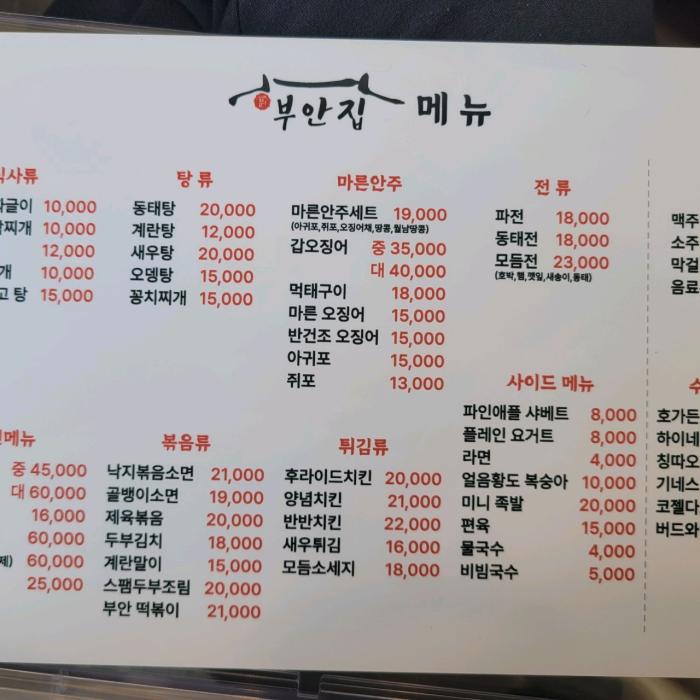 부안집 메뉴
식사류
짜글이 10,000
찌개 10,000
12,000
개 10,000
고탕 15,000
탕류
동태탕 20,000
계란탕 12,000
새우탕 20,000
오뎅탕 15,000
꽁치찌개 15,000
마른안주
마른안주세트 19,000
(아귀포,쥐포,오징어채,땅콩,월남땅콩)
갑오징어 중 35,000
대 40,000
먹태구이 18,000
마른 오징어 15,000
반건조 오징어 15,000
아귀포 15,000
쥐포 13,000
전류
파전 18,000
동태전 18,000
모듬전 23,000
(호박,햄,깻잎,새송이,동태)
맥주
소주
막걸
음료
메뉴
중 45,000
대 60,000
16,000
60,000
60,000
25,000
볶음류
낙지볶음소면 21,000
골뱅이소면 19,000
제육볶음 20,000
두부김치 18,000
계란말이 15,000
스팸두부조림 20,000
부안 떡볶이 21,000
튀김류
후라이드치킨 20,000
양념치킨 21,000
반반치킨 22,000
새우튀김 16,000
모듬소세지 18,000
사이드 메뉴
파인애플 샤베트 8,000
플레인 요거트 8,000
라면 4,000
얼음황도 복숭아 10,000
미니 족발 20,000
편육 15,000
물국수 4,000
비빔국수 5,000
수
호가든
하이네
칭따오
기네스
코젤다
버드와